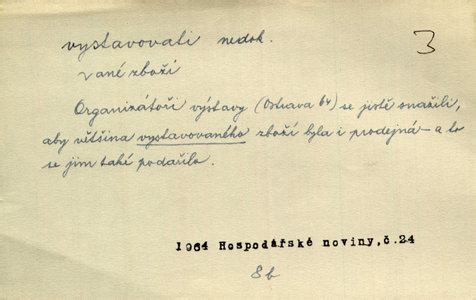 vystavovati nedok. 3
vané zboží
Organizátoři výstavy (Ostrava 64) se jistě snažili,
aby většina vystavovaného zboží byla i prodejná – a to
se jim také podařilo.
1964 Hospodářské noviny,č.24
8b